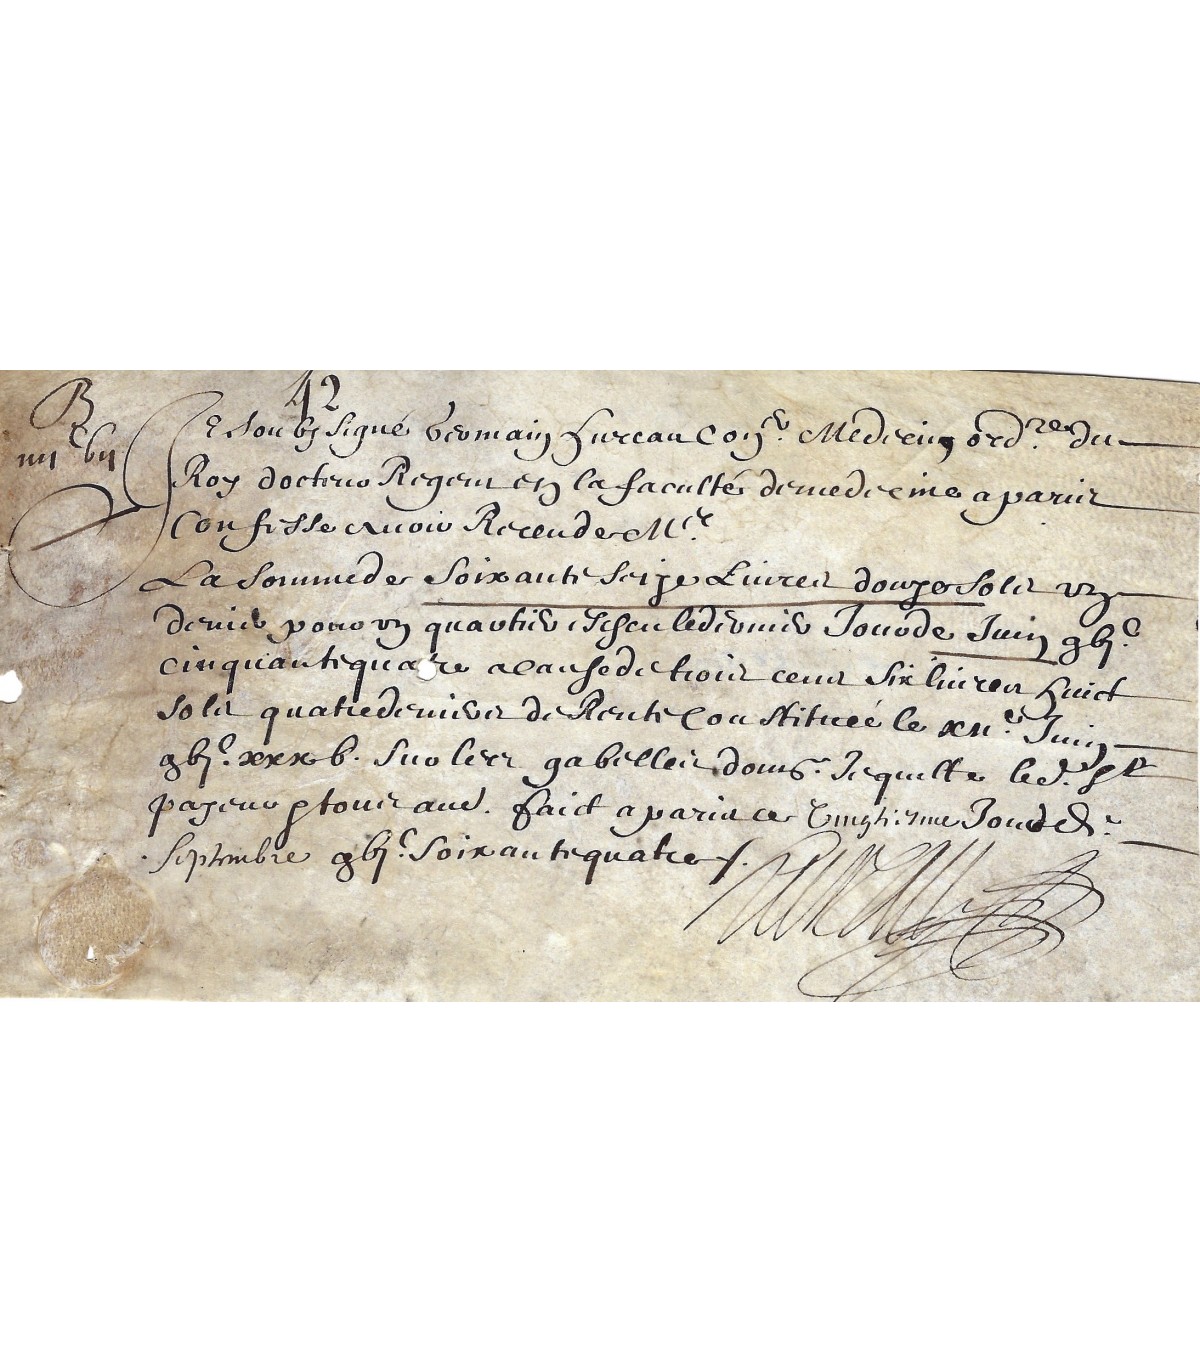 42
B
iiijc bij
Je soubz signé Germain hureau Conser. Medecin ordre du
Roy docteur Regent en la faculté de medecine a paris
Confesse avoir Receu de Me.
La somme de soixante seize Livres douze solz ung
denier pour ung quartier escheu le dernier Jour de Juin gbjc
cinquante quatre a cause de trois cens six livres huict
solz quatre deniers de Rente Constituée le xiie Juin
gbjc xxxb. Sur les gabelles dont Je quitte led. sr
payeur et tous aud. faict a paris ce Vingtiesme Jour de
Septembre gbjc Soixante quatre /.